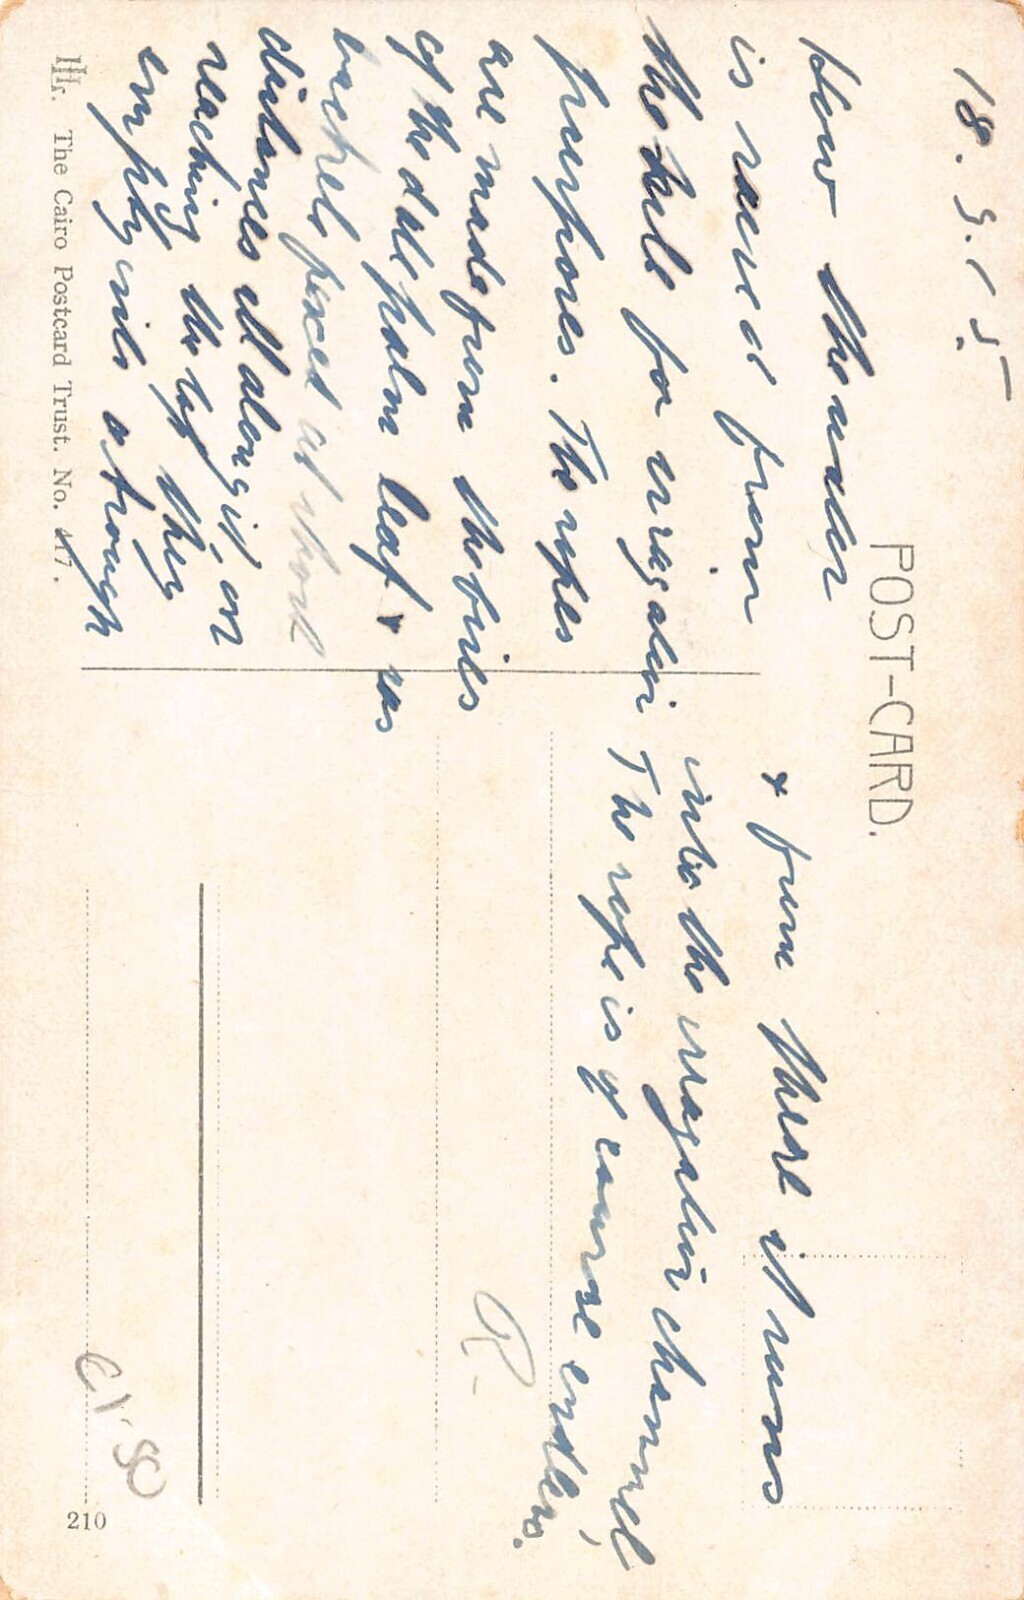 18.3.15
POST-CARD.
How the water
is raised from
the wells for irrigation
purposes. The ropes
are made from the fibres
of the date palm leaf & has
buckets placed at short
distances all along it, on
reaching the top they
empty into a trough
& from there it runs
into the irrigation channel
The rope is of course endless.
The Cairo Postcard Trust. No. 417.
R-
£1.50
210